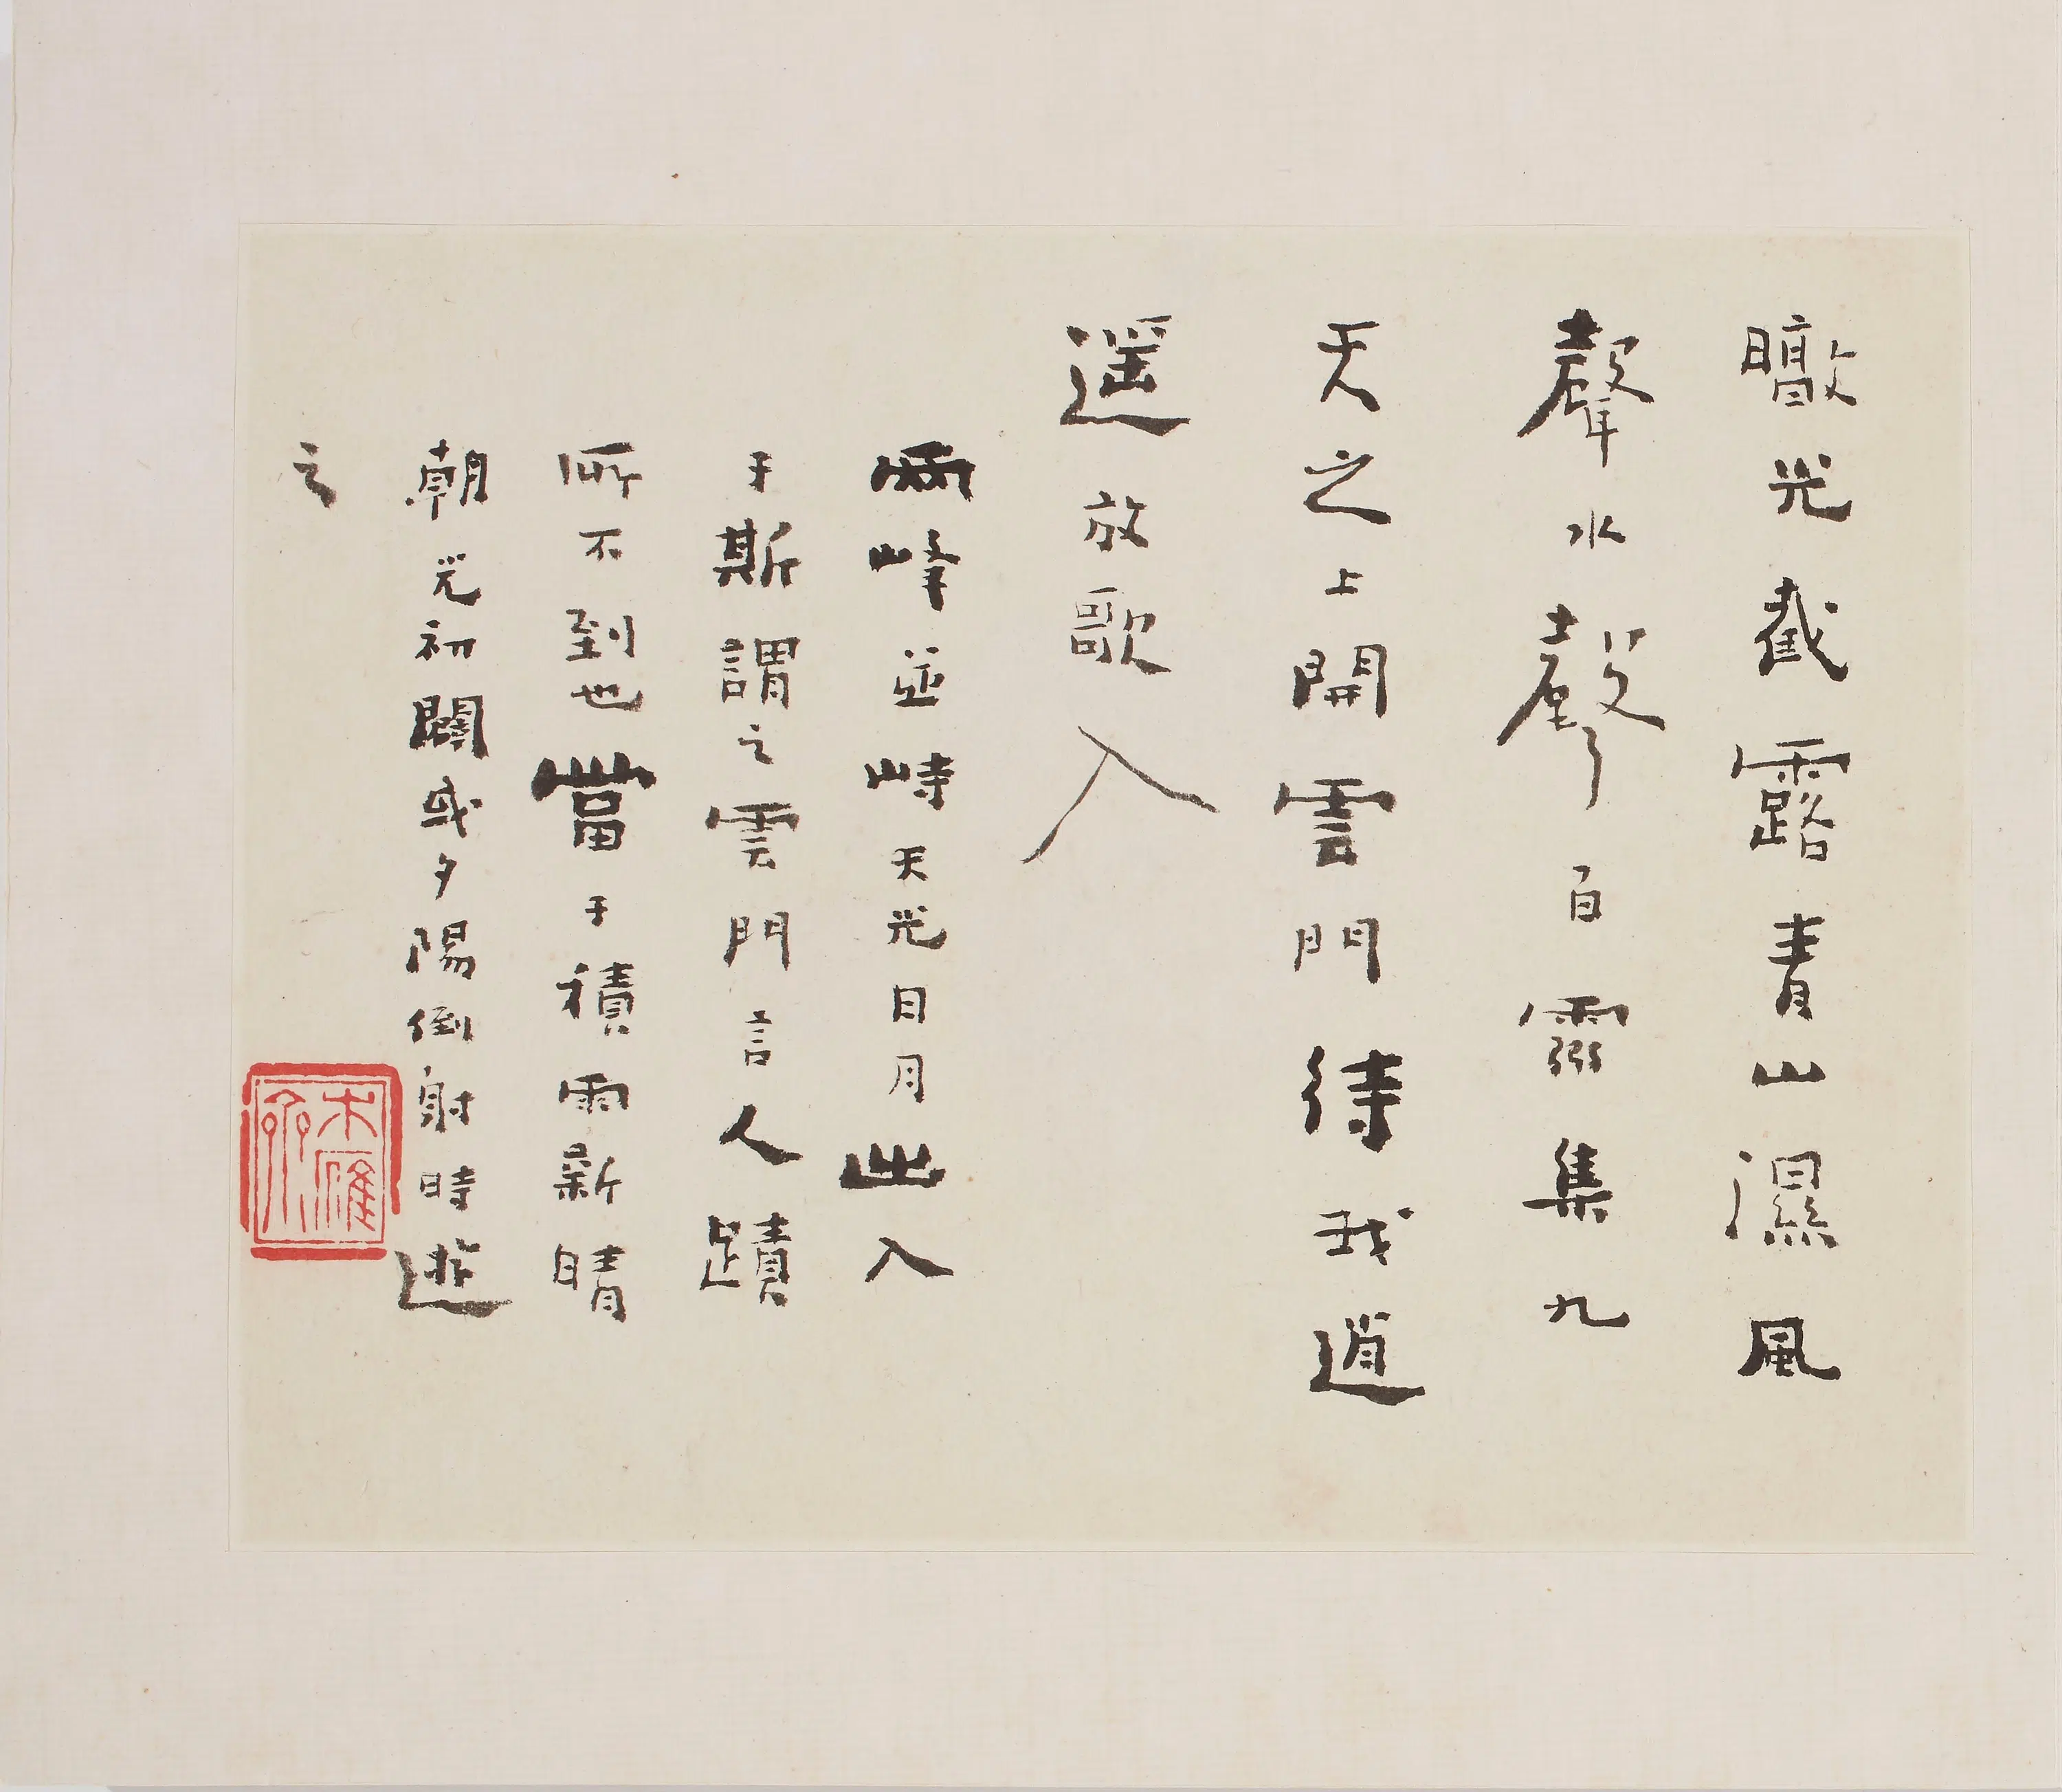 曒光截露青山濕風
聲水聲百靈集九
天之上開雲門待我逍
遥放歌入
兩峰並峙天光日月出入
于斯謂之雲門言人蹟
所不到也當于積雨新晴
朝光初闢或夕陽倒射時遊
之